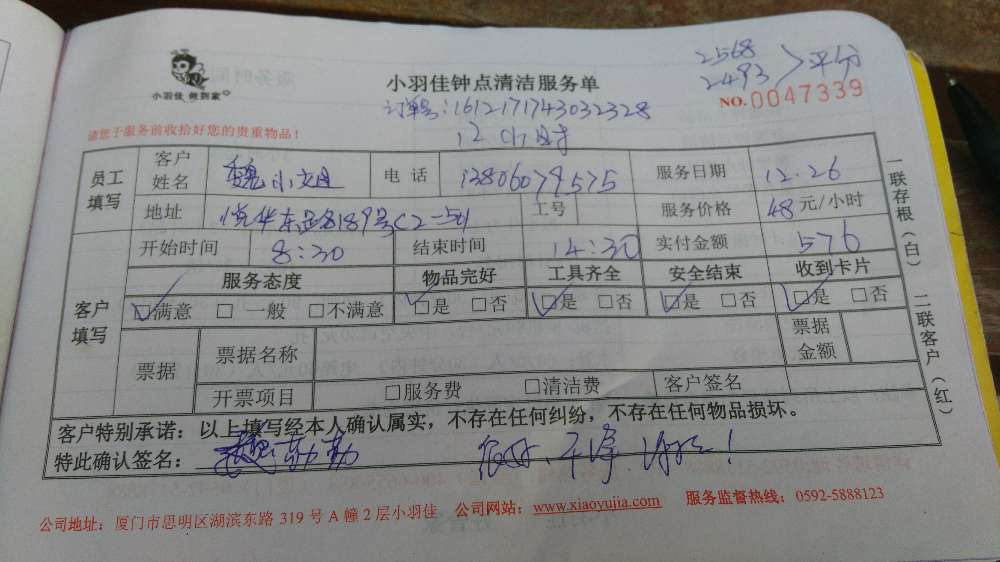 2568
2493 > 平分
小羽佳 做到家
小羽佳钟点清洁服务单
NO.0047339
订单号:161217174303​2328
12小时
请您于服务前收拾好您的贵重物品!
员工填写 客户姓名 魏小姐 电话 13806079575 服务日期 12.26
地址 悦华东路189号C2-501 工号 服务价格 48元/小时
开始时间 8:30 结束时间 14:30 实付金额 576
客户填写 服务态度 物品完好 工具齐全 安全结束 收到卡片
☑满意 □一般 □不满意 ☑是 □否 ☑是 □否 ☑是 □否 ☑是 □否
票据 票据名称 票据金额
开票项目 □服务费 □清洁费 客户签名
客户特别承诺:以上填写经本人确认属实,不存在任何纠纷,不存在任何物品损坏。
特此确认签名: 很好、干净、谢谢!
公司地址:厦门市思明区湖滨东路 319 号 A 幢 2 层小羽佳 公司网站:www.xiaoyujia.com 服务监督热线:0592-5888123
一联存根(白) 二联客户(红)